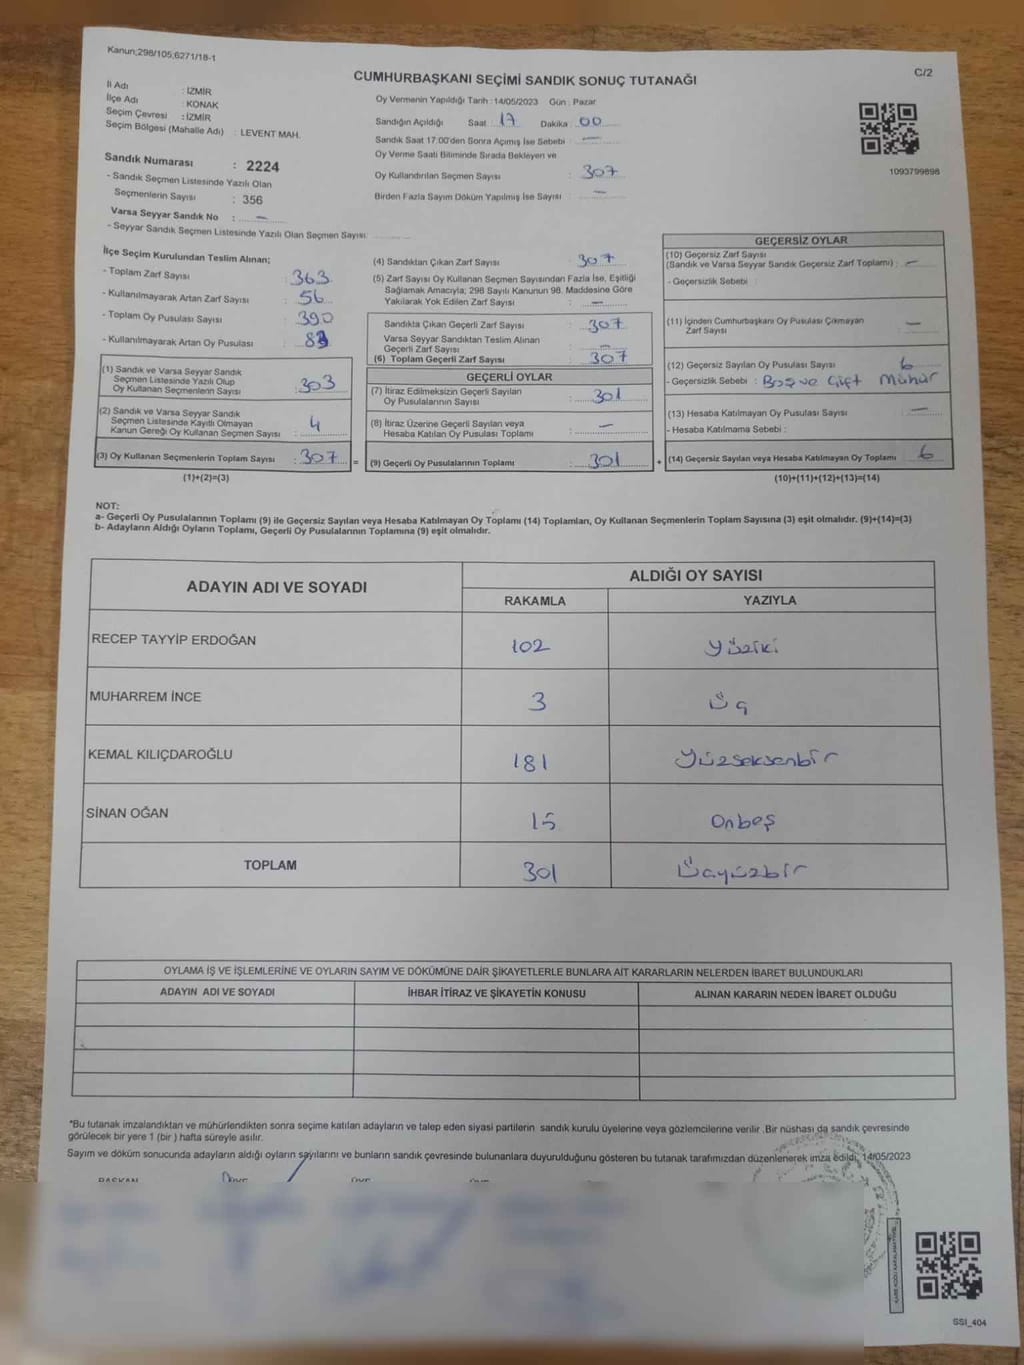 Kanun;298/105;6271/18-1
C/2
CUMHURBAŞKANI SEÇİMİ SANDIK SONUÇ TUTANAĞI
İl Adı : İZMİR
İlçe Adı : KONAK
Seçim Çevresi : İZMİR
Seçim Bölgesi (Mahalle Adı) : LEVENT MAH.
Sandık Numarası : 2224
- Sandık Seçmen Listesinde Yazılı Olan
Seçmenlerin Sayısı : 356
Varsa Seyyar Sandık No : —
- Seyyar Sandık Seçmen Listesinde Yazılı Olan Seçmen Sayısı
Oy Vermenin Yapıldığı Tarih : 14/05/2023 Gün : Pazar
Sandığın Açıldığı Saat 17 Dakika : 00
Sandık Saat 17:00'den Sonra Açımış İse Sebebi : —
Oy Verme Saati Bitiminde Sırada Bekleyen ve
Oy Kullandırılan Seçmen Sayısı : 307
Birden Fazla Sayım Döküm Yapılmış İse Sayısı : —
1093799898
İlçe Seçim Kurulundan Teslim Alınan;
- Toplam Zarf Sayısı : 363
- Kullanılmayarak Artan Zarf Sayısı : 56
- Toplam Oy Pusulası Sayısı : 390
- Kullanılmayarak Artan Oy Pusulası : 83
(1) Sandık ve Varsa Seyyar Sandık
Seçmen Listesinde Yazılı Olup
Oy Kullanan Seçmenlerin Sayısı : 303
(2) Sandık ve Varsa Seyyar Sandık
Seçmen Listesinde Kayıtlı Olmayan
Kanun Gereği Oy Kullanan Seçmen Sayısı : 4
(3) Oy Kullanan Seçmenlerin Toplam Sayısı : 307
(1)+(2)=(3)
(4) Sandıktan Çıkan Zarf Sayısı : 307
(5) Zarf Sayısı Oy Kullanan Seçmen Sayısından Fazla İse, Eşitliği
Sağlamak Amacıyla; 298 Sayılı Kanunun 98. Maddesine Göre
Yakılarak Yok Edilen Zarf Sayısı : —
Sandıkta Çıkan Geçerli Zarf Sayısı : 307
Varsa Seyyar Sandıktan Teslim Alınan
Geçerli Zarf Sayısı : —
(6) Toplam Geçerli Zarf Sayısı : 307
GEÇERLİ OYLAR
(7) İtiraz Edilmeksizin Geçerli Sayılan
Oy Pusulalarının Sayısı : 301
(8) İtiraz Üzerine Geçerli Sayılan veya
Hesaba Katılan Oy Pusulası Toplamı : —
= (9) Geçerli Oy Pusulalarının Toplamı : 301
GEÇERSİZ OYLAR
(10) Geçersiz Zarf Sayısı
(Sandık ve Varsa Seyyar Sandık Geçersiz Zarf Toplamı) : —
- Geçersizlik Sebebi :
(11) İçinden Cumhurbaşkanı Oy Pusulası Çıkmayan
Zarf Sayısı : —
(12) Geçersiz Sayılan Oy Pusulası Sayısı : 6
- Geçersizlik Sebebi : Boş ve Çift Mühür
(13) Hesaba Katılmayan Oy Pusulası Sayısı : —
- Hesaba Katılmama Sebebi :
+ (14) Geçersiz Sayılan veya Hesaba Katılmayan Oy Toplamı : 6
(10)+(11)+(12)+(13)=(14)
NOT:
a- Geçerli Oy Pusulalarının Toplamı (9) ile Geçersiz Sayılan veya Hesaba Katılmayan Oy Toplamı (14) Toplamları, Oy Kullanan Seçmenlerin Toplam Sayısına (3) eşit olmalıdır. (9)+(14)=(3)
b- Adayların Aldığı Oyların Toplamı, Geçerli Oy Pusulalarının Toplamına (9) eşit olmalıdır.
ADAYIN ADI VE SOYADI
ALDIĞI OY SAYISI
RAKAMLA YAZIYLA
RECEP TAYYİP ERDOĞAN 102 Yüziki
MUHARREM İNCE 3 Üç
KEMAL KILIÇDAROĞLU 181 Yüzseksenbir
SİNAN OĞAN 15 Onbeş
TOPLAM 301 Üçyüzbir
OYLAMA İŞ VE İŞLEMLERİNE VE OYLARIN SAYIM VE DÖKÜMÜNE DAİR ŞİKAYETLERLE BUNLARA AİT KARARLARIN NELERDEN İBARET BULUNDUKLARI
ADAYIN ADI VE SOYADI İHBAR İTİRAZ VE ŞİKAYETİN KONUSU ALINAN KARARIN NEDEN İBARET OLDUĞU
*Bu tutanak imzalandıktan ve mühürlendikten sonra seçime katılan adayların ve talep eden siyasi partilerin sandık kurulu üyelerine veya gözlemcilerine verilir .Bir nüshası da sandık çevresinde
görülecek bir yere 1 (bir ) hafta süreyle asılır.
Sayım ve döküm sonucunda adayların aldığı oyların sayılarını ve bunların sandık çevresinde bulunanlara duyurulduğunu gösteren bu tutanak tarafımızdan düzenlenerek imza edildi. 14/05/2023
BAŞKAN
SSI_404